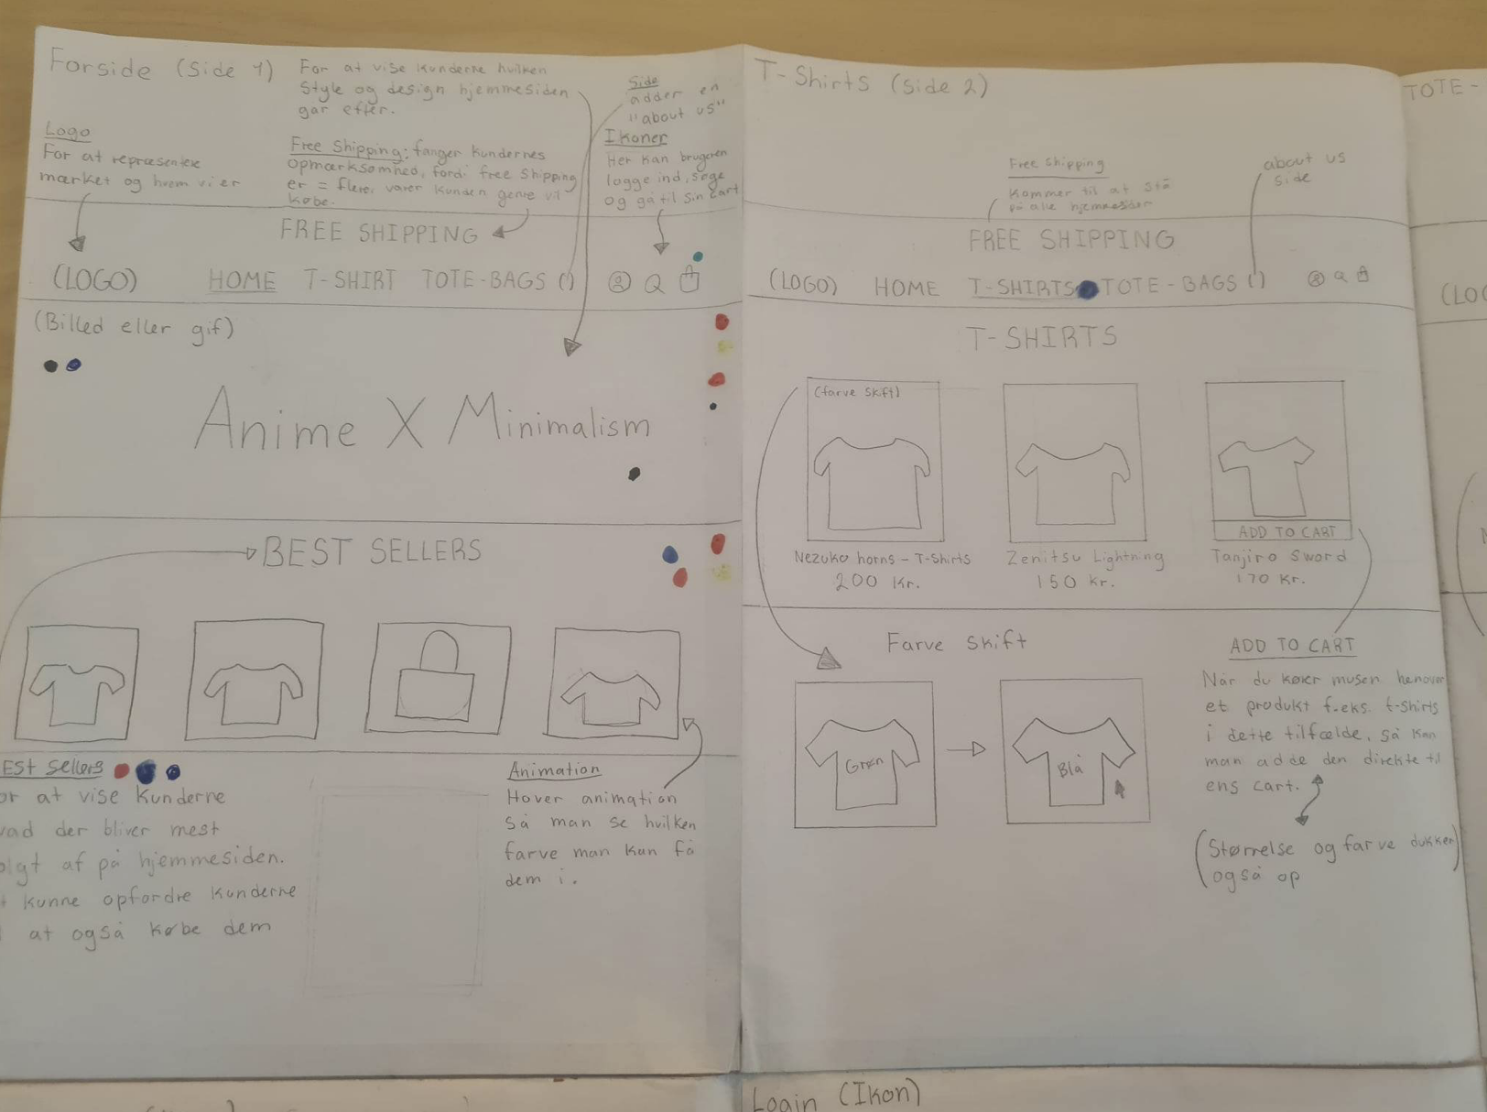 Forside (Side 1)
For at vise kunderne hvilken
Style og design hjemmesiden
går efter.
Side
adder en
"about us"
Logo
For at repræsentere
mærket og hvem vi er
Free Shipping: fanger kundernes
opmærksomhed, fordi free shipping
er = flere varer kunden gerne vil
købe.
Ikoner
Her kan brugeren
logge ind, søge
og gå til sin cart
FREE SHIPPING
(LOGO) HOME T-SHIRT TOTE-BAGS ()
(Billed eller gif)
Anime X Minimalism
BEST SELLERS
EST Sellers
or at vise kunderne
vad der bliver mest
olgt af på hjemmesiden.
t kunne opfordre kunderne
l at også købe dem
Animation
Hover animation
så man se hvilken
farve man kan få
dem i.
T-Shirts (Side 2)
Free shipping
Kommer til at stå
på alle hjemmesider
about us
side
FREE SHIPPING
(LOGO) HOME T-SHIRTS TOTE-BAGS ()
T-SHIRTS
(farve skift)
ADD TO CART
Nezuko horns - T-Shirts
200 Kr.
Zenitsu Lightning
150 kr.
Tanjiro Sword
170 Kr.
Farve skift
Grøn
Blå
ADD TO CART
Når du kører musen henover
et produkt f.eks. t-shirts
i dette tilfælde, så kan
man adde den direkte til
ens cart.
(Størrelse og farve dukker
også op)
TOTE-
(LOG
Login (Ikon)